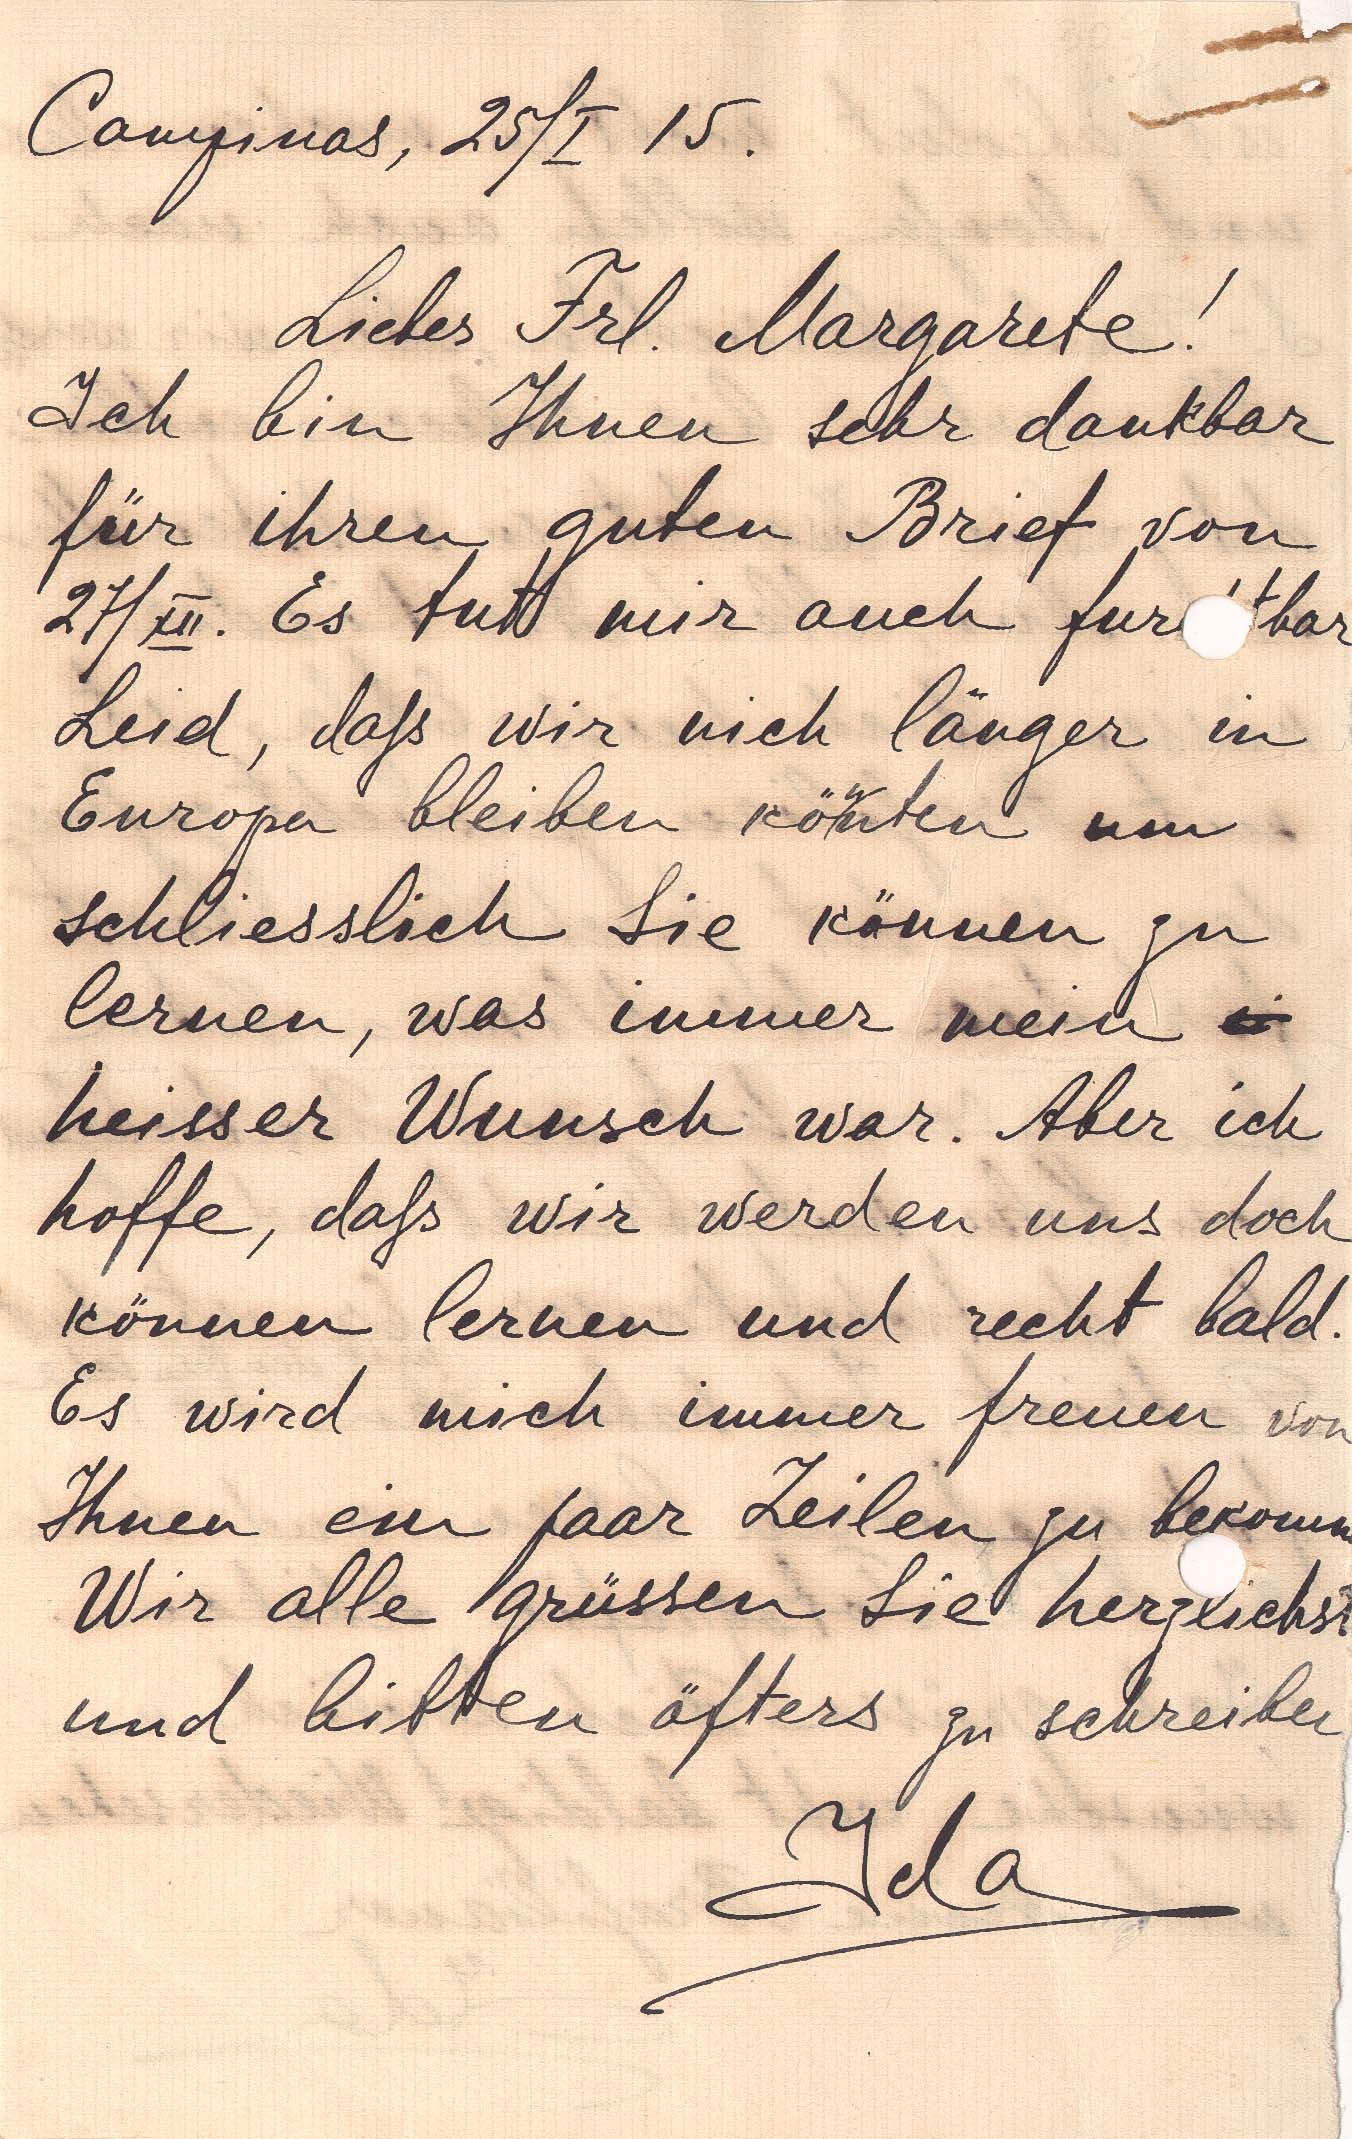 Campinas, 25/I 15.
Liebes Frl. Margarete!
Ich bin Ihnen sehr dankbar
für ihren guten Brief von
27/XII. Es tut mir auch furchtbar
Leid, daß wir nich länger in
Europa bleiben könten um
schliesslich Sie können zu
lernen, was immer mein
heisser Wunsch war. Aber ich
hoffe, daß wir werden uns doch
können lernen und recht bald.
Es wird mich immer freuen von
Ihnen ein paar Zeilen zu bekomm
Wir alle grüssen Sie herzlichst
und bitten öfters zu schreiben
Ida